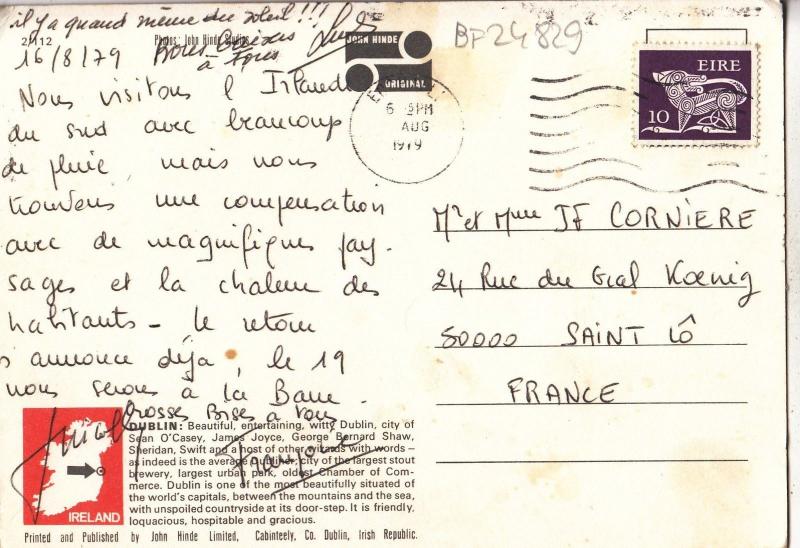 il y a quand même du soleil !!!
2/112
Photos: John Hinde Studios
16/8/79
Bons Baisers
à tous
JOHN HINDE
ORIGINAL
BP24829
EIRE
10
6 PM
AUG
1979
Nous visitons l'Irlande
du sud avec beaucoup
de pluie, mais nous
trouvons une compensation
avec de magnifiques pay-
sages et la chaleur des
habitants - le retour
s'annonce déjà, le 19
nous serons à la Baule.
Grosses Bises à tous
Françoise
Mr et Mme JF CORNIERE
24 Rue du Gral Koenig
50000 SAINT LÔ
FRANCE
DUBLIN: Beautiful, entertaining, witty Dublin, city of
Sean O'Casey, James Joyce, George Bernard Shaw,
Sheridan, Swift and a host of other wizards with words –
as indeed is the average Dubliner; city of the largest stout
brewery, largest urban park, oldest Chamber of Com-
merce. Dublin is one of the most beautifully situated of
the world's capitals, between the mountains and the sea,
with unspoiled countryside at its door-step. It is friendly,
loquacious, hospitable and gracious.
IRELAND
Printed and Published by John Hinde Limited, Cabinteely, Co. Dublin, Irish Republic.